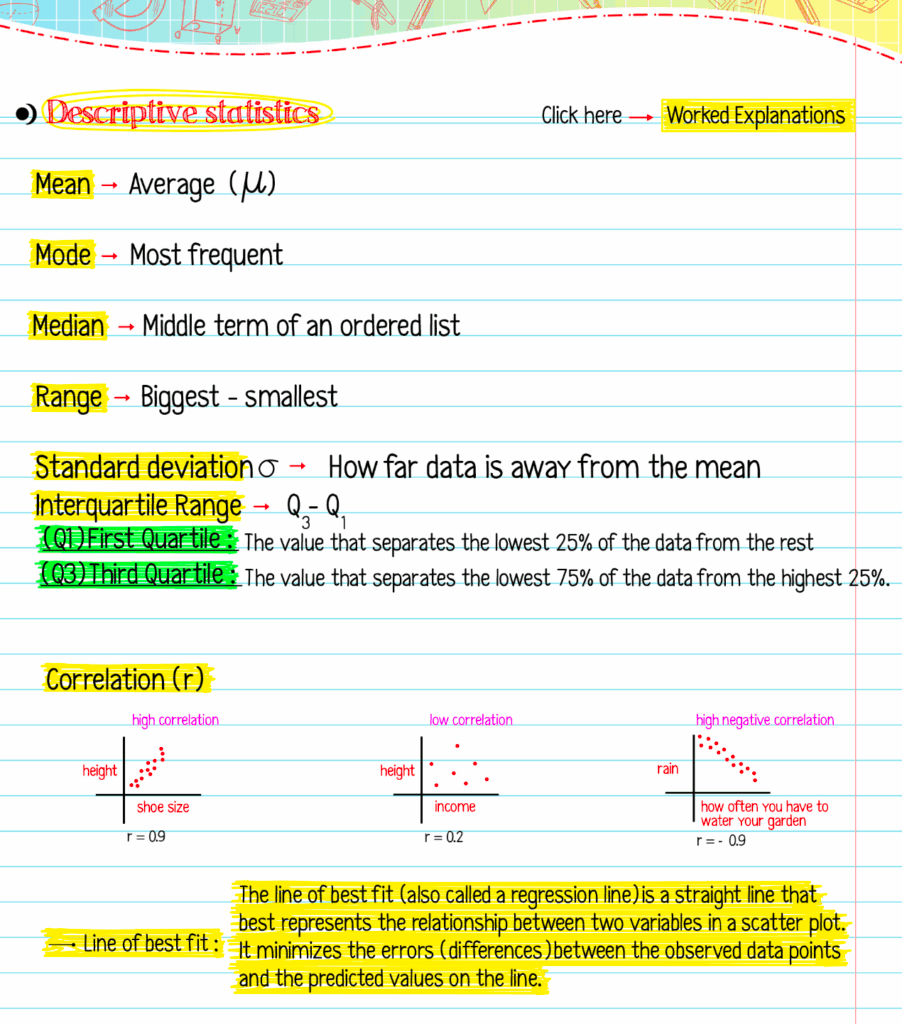 Descriptive statistics
Click here → Worked Explanations
Mean → Average (μ)
Mode → Most frequent
Median → Middle term of an ordered list
Range → Biggest - smallest
Standard deviation σ → How far data is away from the mean
Interquartile Range → Q₃- Q₁
(Q1)First Quartile : The value that separates the lowest 25% of the data from the rest
(Q3)Third Quartile : The value that separates the lowest 75% of the data from the highest 25%.
Correlation (r)
high correlation
height
shoe size
r = 0.9
low correlation
height
income
r = 0.2
high negative correlation
rain
how often you have to
water your garden
r = - 0.9
→ Line of best fit :
The line of best fit (also called a regression line) is a straight line that
best represents the relationship between two variables in a scatter plot.
It minimizes the errors (differences) between the observed data points
and the predicted values on the line.